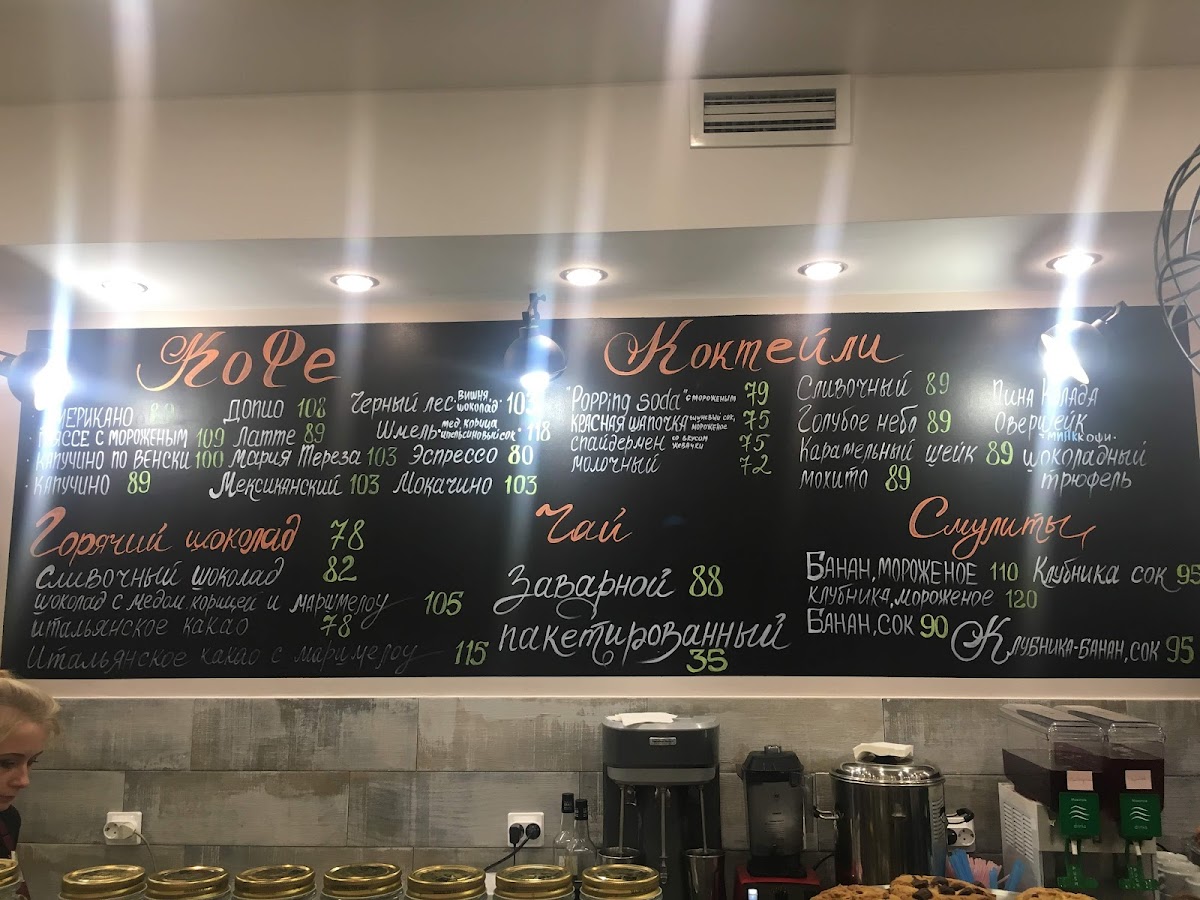 Кофе
Американо 89
Глассе с мороженым 109
Капучино по венски 100
Капучино 89
Допио 108
Латте 89
Мария Тереза 103
Мексиканский 103
Черный лес вишня, шоколад
Шмель мед, корица апельсиновый сок 118
Эспрессо 80
Мокачино 103
Коктейли
"Popping soda" с мороженым 79
Красная шапочка мороженое 75
Спайдермен со вкусом жевачки 75
Молочный 72
Сливочный 89
Голубое небо 89
Карамельный шейк 89
Мохито 89
Пина Колада
Овершейк
шоколадный
трюфель
Горячий шоколад 78
Сливочный шоколад 82
шоколад с медом, корицей и маршмелоу 105
итальянское какао 78
Итальянское какао с маршмелоу 115
Чай
Заварной 88
пакетированный
35
Смулиты
Банан, мороженое 110
клубника, мороженое 120
Банан, сок 90
Клубника сок 95
Клубника-банан, сок 95